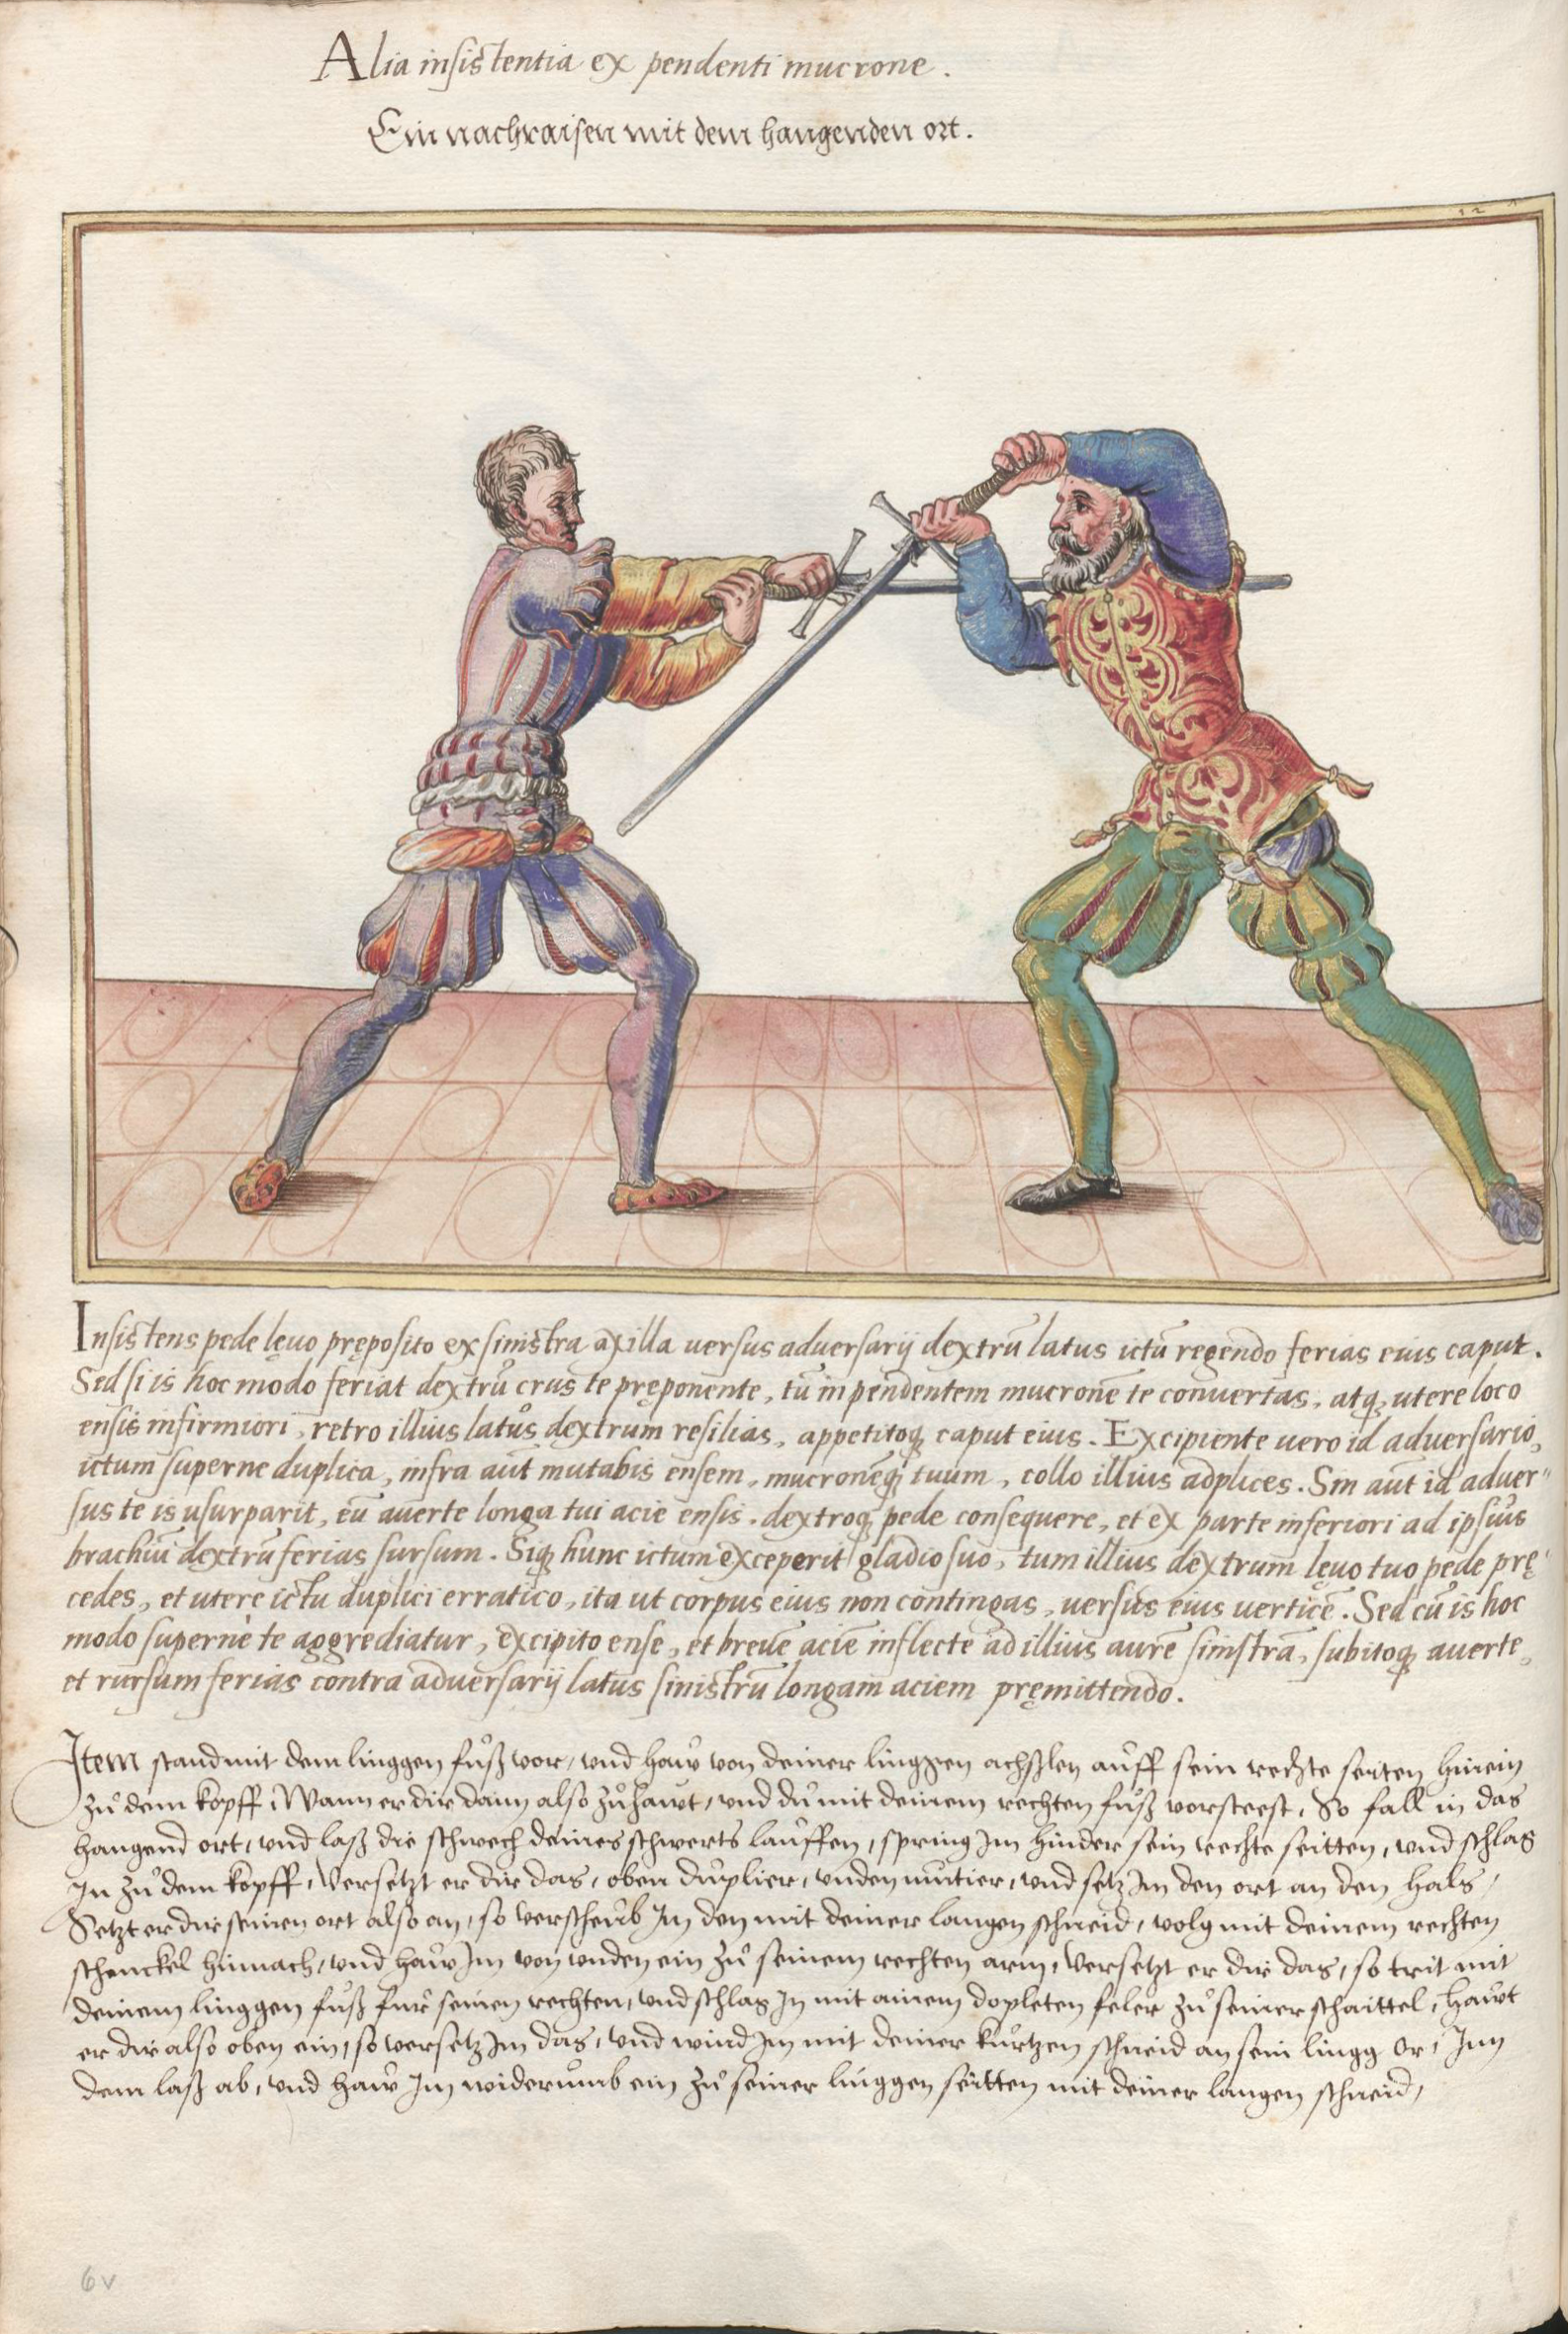 Alia insistentia ex pendenti mucrone.
Ein nachraisen mit dem hangenden ort.
12
Insistens pede lęuo pręposito ex sinistra axilla uersus aduersarij dextrū latus ictū regendo ferias eius caput.
Sed si is hoc modo feriat dextrū crus te pręponente, tū in pendentem mucronē te conuertas, atq; utere loco
ensis infirmiori, retro illius latus dextrum resilias, appetitoq; caput eius. Excipiente uero id aduersario,
ictum superne duplica, infra aūt mutabis ensem, mucronēq; tuum, collo illius adplices. Sin aūt id aduer-
sus te is usurparit, eū auerte longa tui acie ensis. dextroq; pede consequere, et ex parte inferiori ad ipsius
brachiū dextrū ferias sursum. Siq; hunc ictum exceperit gladio suo, tum illius dextrum lęuo tuo pede prę-
cedes, et utere ictu duplici erratico, ita ut corpus eius non contingas, uersus eius uerticē. Sed cū is hoc
modo superne te aggrediatur, excipito ense, et breuē aciē inflecte ad illius aurē sinistrā, subitoq; auerte,
et rursum ferias contra aduersarij latus sinistrū longam aciem pręmittendo.
Item stand mit dem linggen fůß vor, und haw von deiner linggen achslen auff sein rechte seiten hinein
zů dem kopff, Wann er dir dann also zůhawt, und du mit deinem rechten fůß vorsteest, So fall in das
hangend ort, und laß die schwech deines schwerts lauffen, spring im hinder sein rechte seitten, und schlag
In zů dem kopff, Versetzt er dir das, oben duplier, unden mutier, und setz Im den ort an den hals,
Setzt er dir seinen ort also an, so verscheub Im den mit deiner langen schneid, volg mit deinem rechten
schenckel hinnach, und haw Im von unden ein zů seinem rechten arm, Versetzt er dir das, so trit mit
deinem linggen fůß fur seinen rechten, und schlag In mit ainem dopleten feler zů seiner schaittel, hawt
er dir also oben ein, so versetz Im das, und wind Im mit deiner kurtzen schneid an sein lingg or, Inn
dem laß ab, und haw Im widerumb ein zů seiner linggen seitten mit deiner langen schneid,
6v